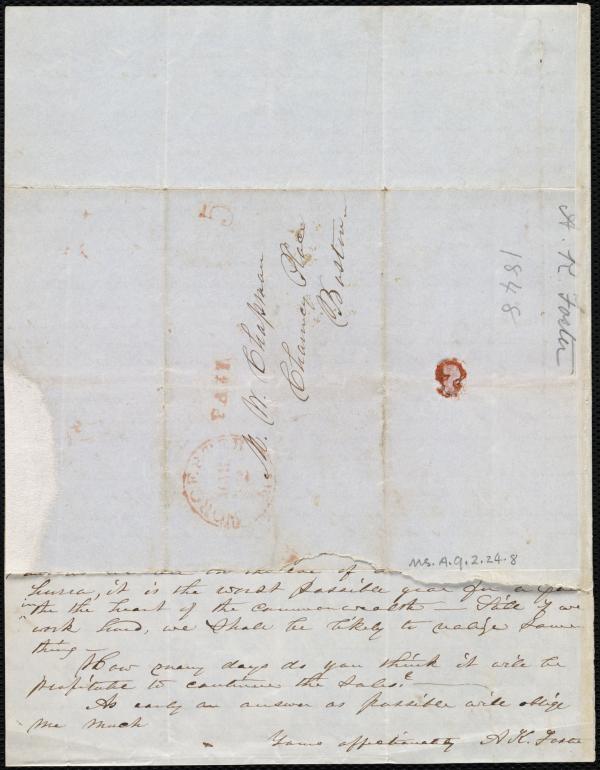 5
M. W. Chapman
Chauncy Place
Boston
PAID
WORCESTER
MAR
A. K. Foster
1848
Ms. A. 9. 2. 24. 8
on the eve of a
hurra, it is the worst possible year for a
in the heart of the commonwealth — Still if we
work hard, we shall be likely to realize some
thing —
How many days do you think it will be
profitable to continue the sales?
As early an answer as possible will oblige
me much
Yours affectionately A. K. Foster